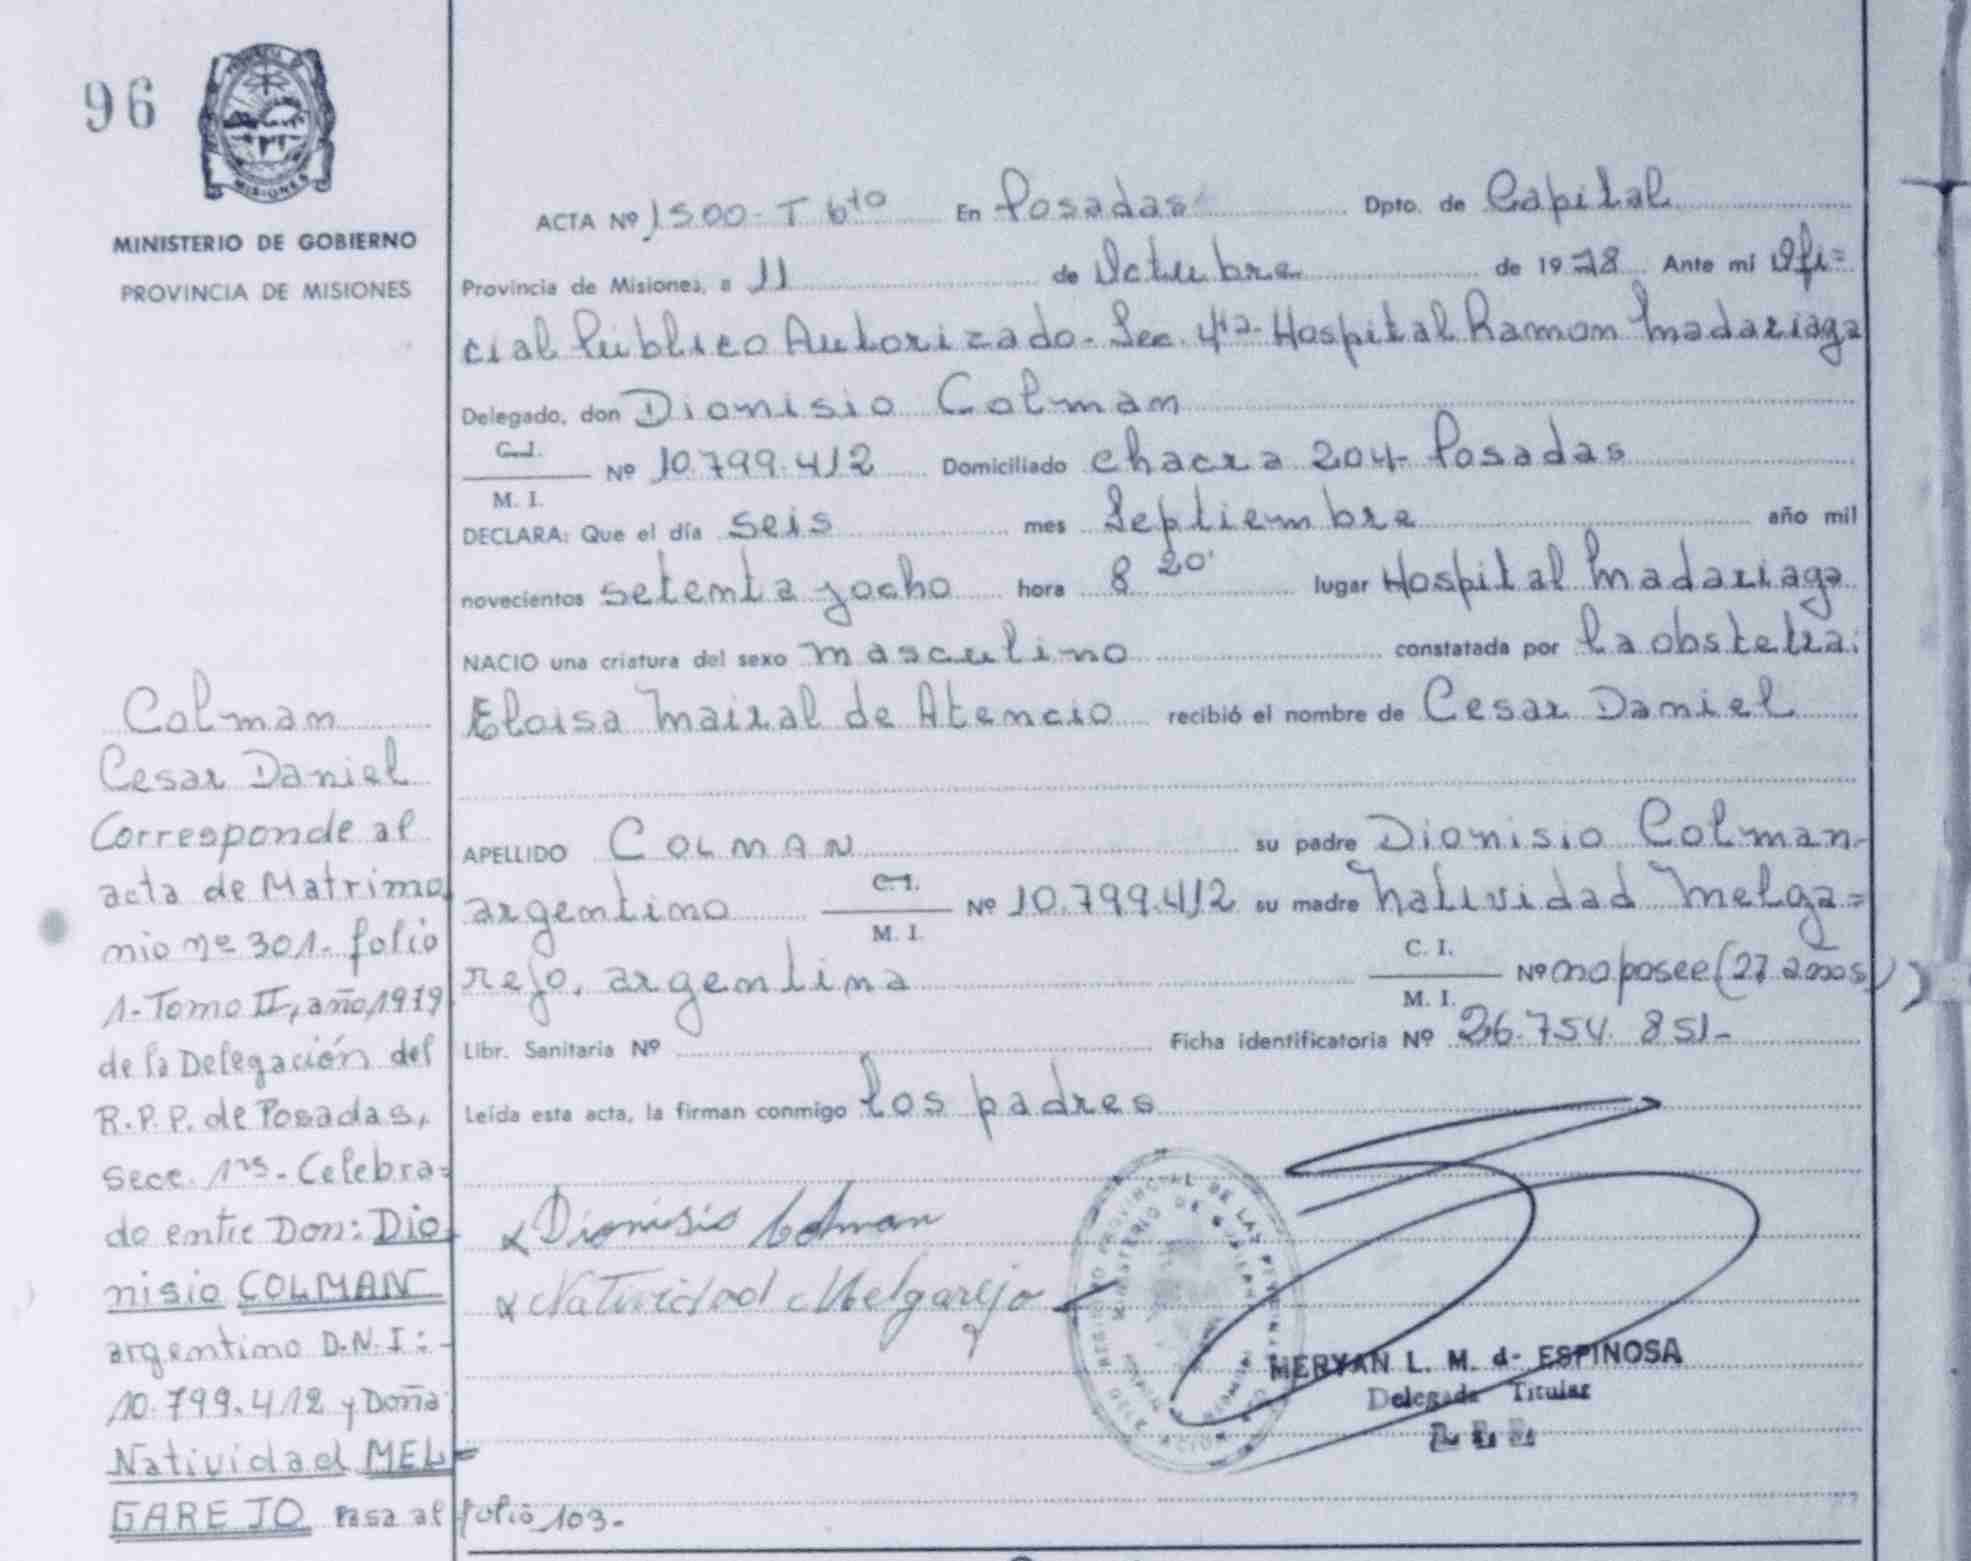 96
MISIONES
MINISTERIO DE GOBIERNO
PROVINCIA DE MISIONES
ACTA Nº 1500 - T 6to En Posadas Dpto. de Capital
Provincia de Misiones, a 11 de Octubre de 1978 Ante mi Ofi=
cial Público Autorizado - Sec. 4ta - Hospital Ramon Madariaga
Delegado, don Dionisio Colman
C.I.
M. I.
Nº 10.799.412 Domiciliado chacra 204 - Posadas
DECLARA: Que el día seis mes Septiembre año mil
novecientos setenta y ocho hora 8 20' lugar Hospital Madariaga
NACIO una criatura del sexo masculino constatada por la obstetra:
Eloisa Mairal de Atencio recibió el nombre de Cesar Daniel
APELLIDO COLMAN su padre Dionisio Colman-
argentino C.I. M. I. Nº 10.799.412 su madre Natividad Melga=
rejo, argentina C. I. M. I. Nº no posee (27 años)
Libr. Sanitaria Nº Ficha identificatoria Nº 26.754.851-
Leída esta acta, la firman conmigo los padres
Dionisio Colman
Natividad Melgarejo
MERYAN L. M. d- ESPINOSA
Delegada Titular
Colman
Cesar Daniel
Corresponde al
acta de Matrimo
nio nº 301- folio
1- Tomo II, año, 1979
de la Delegación del
R.P.P. de Posadas,
Secc. 1ra - Celebra=
do entre Don: Dio
nisio COLMAN
argentino D.N.I: -
10.799.412 y Doña
Natividad MEL=
GAREJO Pasa al folio 103.-